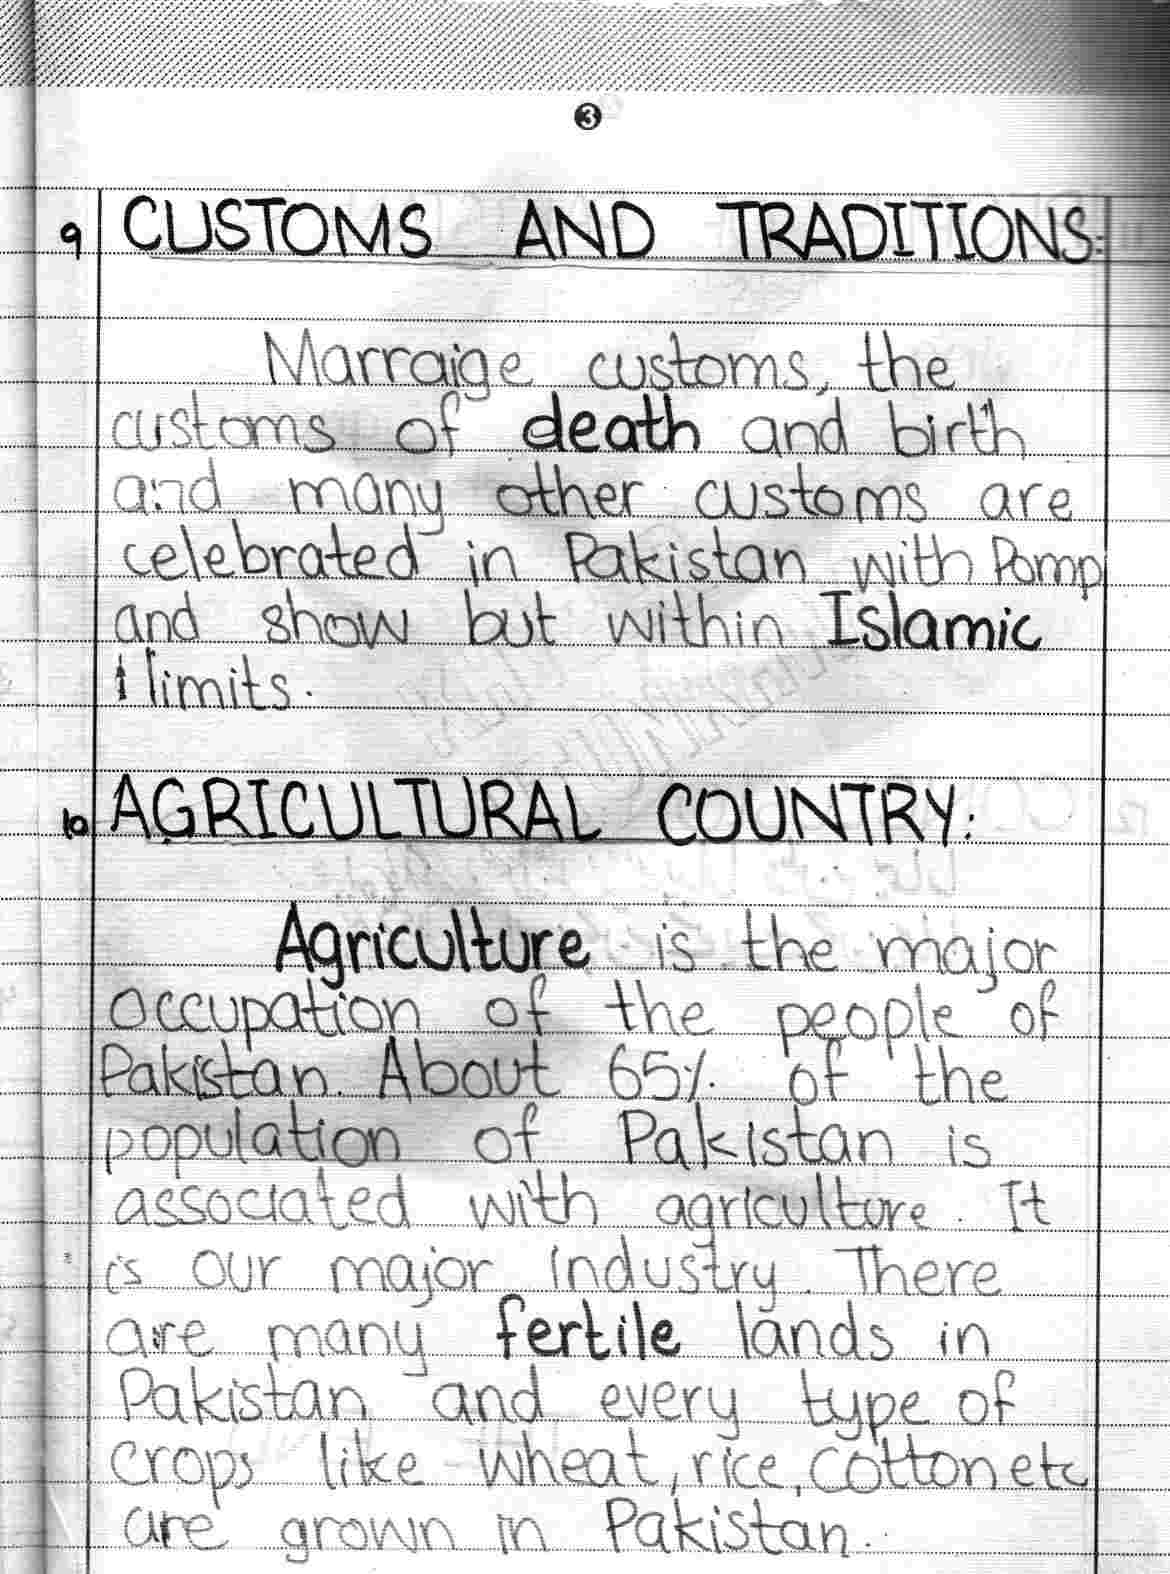 3
9 CUSTOMS AND TRADITIONS:
Marraige customs, the
customs of death and birth
and many other customs are
celebrated in Pakistan with Pomp
and show but within Islamic
limits.
10 AGRICULTURAL COUNTRY:
Agriculture is the major
occupation of the people of
Pakistan. About 65% of the
population of Pakistan is
associated with agriculture. It
is our major industry. There
are many fertile lands in
Pakistan and every type of
crops like wheat, rice, cotton etc
are grown in Pakistan.